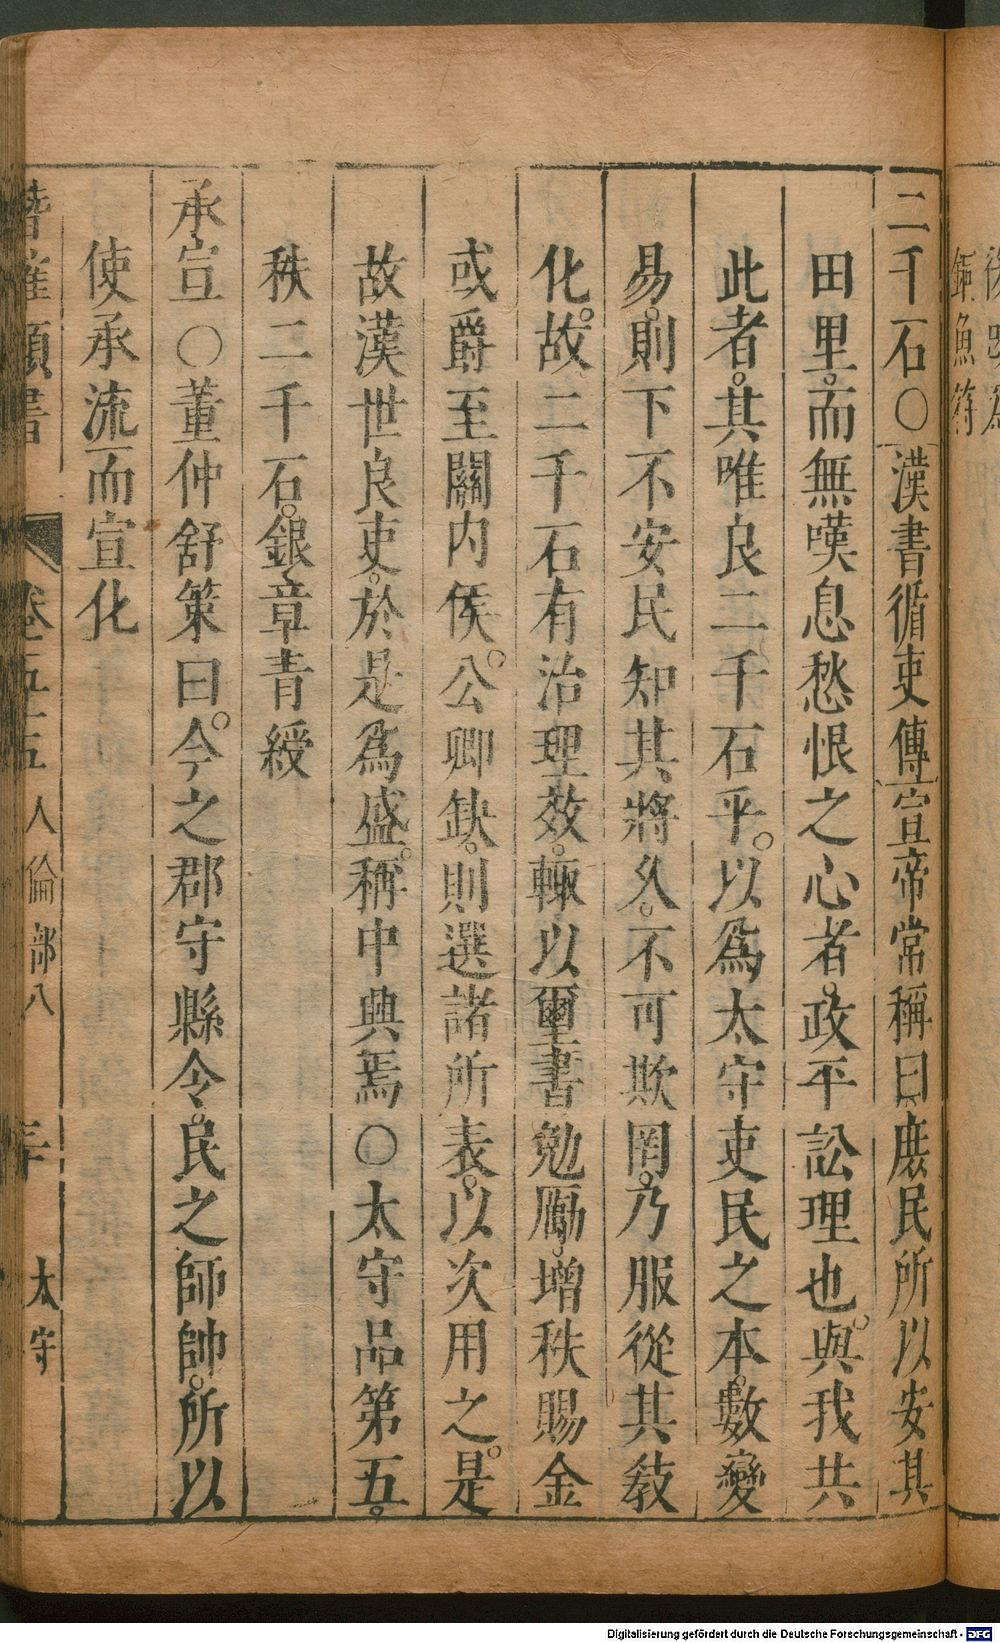 二千石○漢書循吏傳宣帝常稱曰庶民所以安其
田里。而無嘆息愁恨之心者。政平訟理也。與我共
此者。其唯良二千石乎。以爲太守吏民之本。數變
易。則下不安民知其將久。不可欺罔。乃服從其敎
化。故二千石有治理效。輙以璽書勉勵。增秩賜金
或爵至關内侯。公卿缺。則選諸所表。以次用之。是
故漢世良吏。於是爲盛。稱中興焉○太守品第五。
秩二千石。銀章青綬
承宣○董仲舒策曰。今之郡守縣令。民之師帥。所以
使承流而宣化
潛確類書
卷五十五 人倫部八
太守
Digitalisierung gefördert durch die Deutsche Forschungsgemeinschaft - DFG